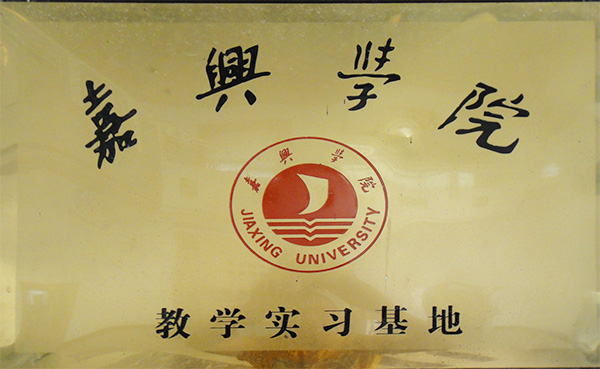 嘉興学院
嘉興学院
JIAXING UNIVERSITY
教学实习基地